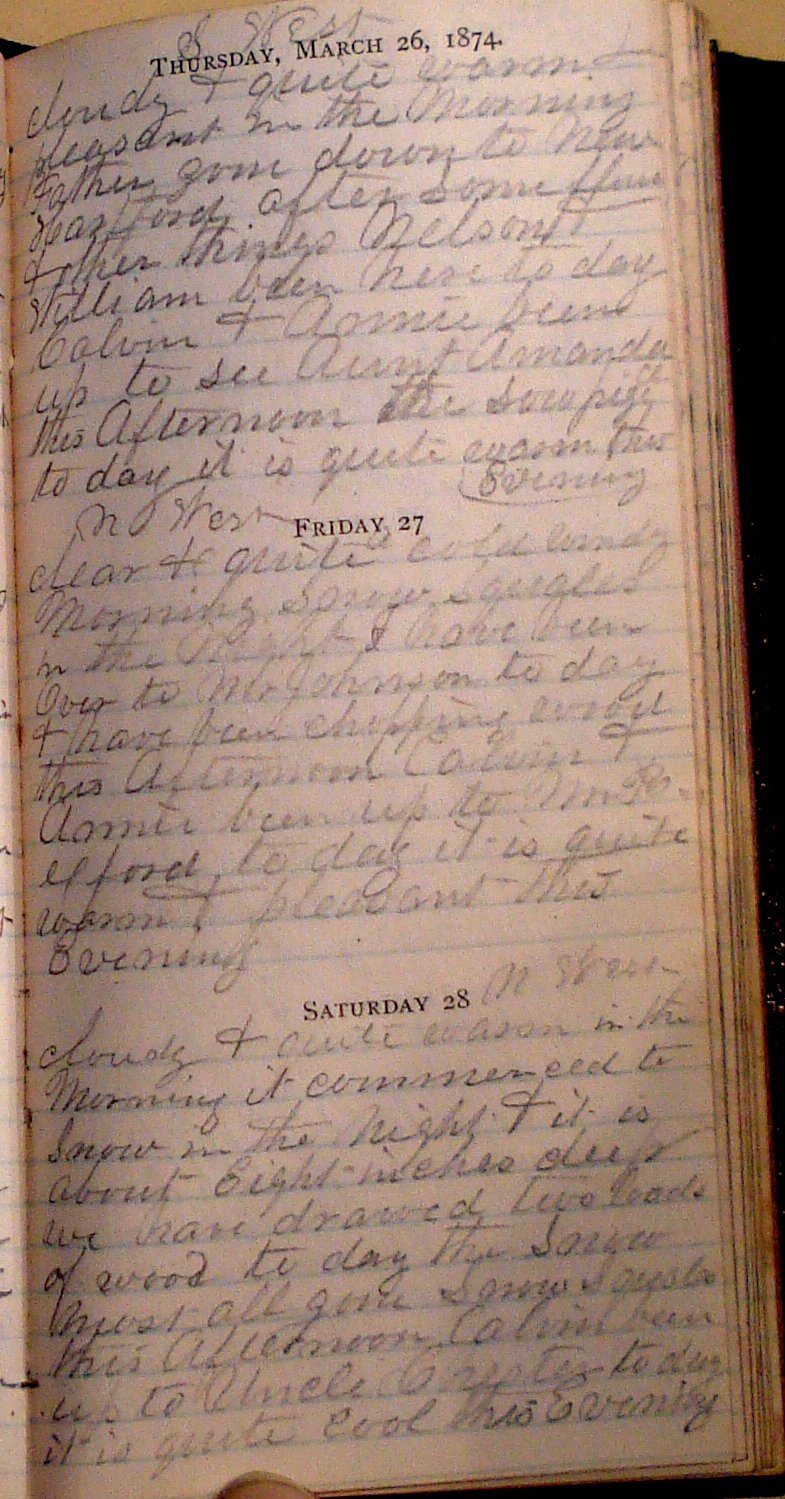 S West
THURSDAY, MARCH 26, 1874.
cloudy & quite warm &
pleasant in the Morning
Father gone down to New
Hartford after some flour
& other things Nelson &
William been here to day
Calvin & Annie been
up to see Aunt Amanda
this Afternoon the sow
to day it is quite warm this
Evening
N West
FRIDAY 27
clear & quite cold windy
Morning Snow Squgles
in the Night I have been
Over to Mr Johnson to day
& have been chopping wood
this Afternoon Calvin &
Annie been up to Mr
to day it is quite
warm & pleasant this
Evening
N West
SATURDAY 28
cloudy & quite warm in the
Morning it commenced to
Snow in the Night & it is
about Eight inches deep
we have drawed two loads
of wood to day the Snow
most all gone Snow
this Afternoon Calvin been
up to Uncle Chester to day
it is quite cool this Evening